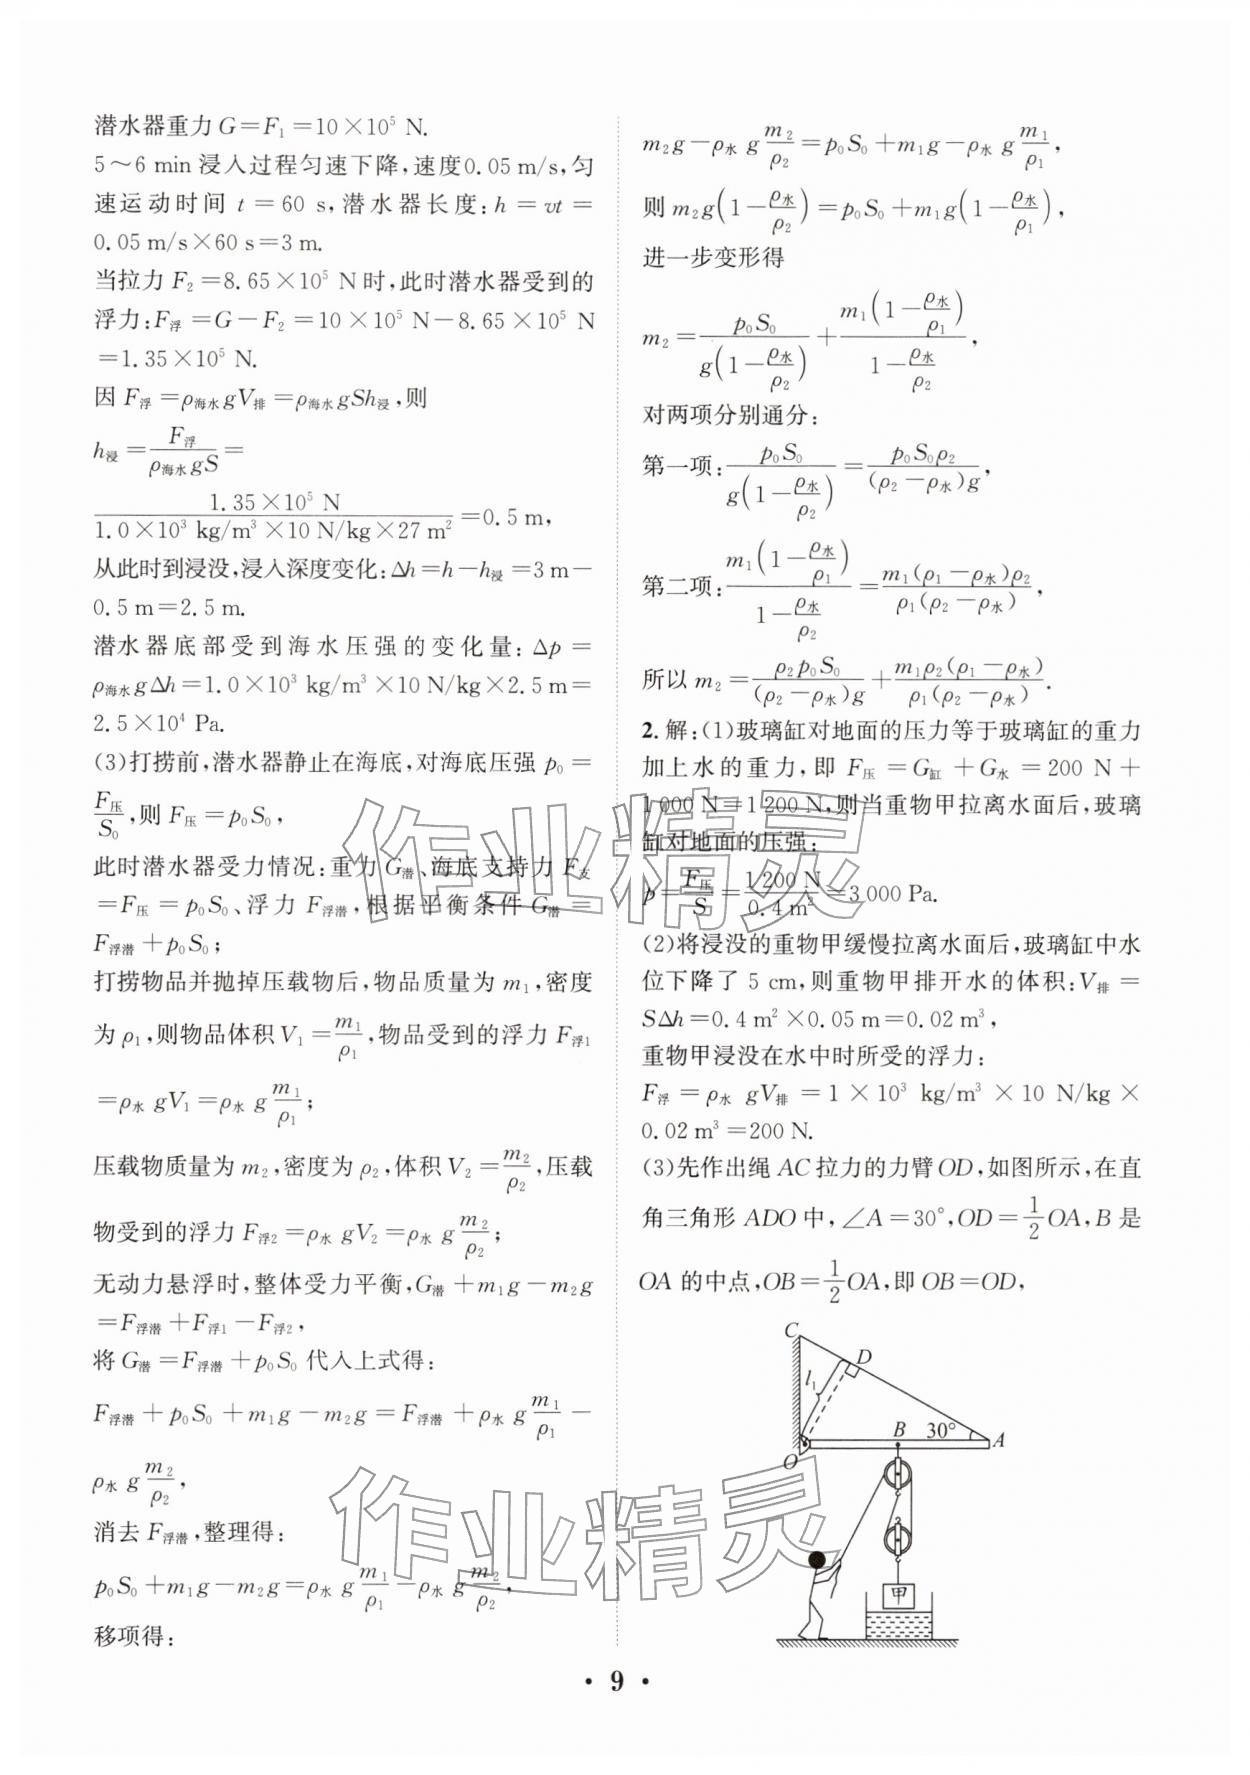 潜水器重力 G=F₁=10×10⁵ N.
5～6 min 浸入过程匀速下降,速度0.05 m/s,匀
速运动时间 t=60 s,潜水器长度:h=vt=
0.05 m/s×60 s=3 m.
当拉力 F₂=8.65×10⁵ N时,此时潜水器受到的
浮力:F浮=G-F₂=10×10⁵ N-8.65×10⁵ N
=1.35×10⁵ N.
因 F浮=ρ海水gV排=ρ海水gSh浸,则
h浸=F浮/(ρ海水gS)=
(1.35×10⁵ N)/(1.0×10³ kg/m³×10 N/kg×27 m²)=0.5 m,
从此时到浸没,浸入深度变化:Δh=h-h浸=3 m-
0.5 m=2.5 m.
潜水器底部受到海水压强的变化量:Δp=
ρ海水gΔh=1.0×10³ kg/m³×10 N/kg×2.5 m=
2.5×10⁴ Pa.
(3)打捞前,潜水器静止在海底,对海底压强 p₀=
F压/S₀,则 F压=p₀S₀,
此时潜水器受力情况:重力 G潜、海底支持力 F支
=F压=p₀S₀、浮力 F浮潜,根据平衡条件 G潜=
F浮潜+p₀S₀;
打捞物品并抛掉压载物后,物品质量为 m₁,密度
为 ρ₁,则物品体积 V₁=m₁/ρ₁,物品受到的浮力 F浮1
=ρ水 gV₁=ρ水 g m₁/ρ₁;
压载物质量为 m₂,密度为 ρ₂,体积 V₂=m₂/ρ₂,压载
物受到的浮力 F浮2=ρ水 gV₂=ρ水 g m₂/ρ₂;
无动力悬浮时,整体受力平衡,G潜+m₁g-m₂g
=F浮潜+F浮1-F浮2,
将 G潜=F浮潜+p₀S₀ 代入上式得:
F浮潜+p₀S₀+m₁g-m₂g=F浮潜+ρ水 g m₁/ρ₁-
ρ水 g m₂/ρ₂,
消去 F浮潜,整理得:
p₀S₀+m₁g-m₂g=ρ水 g m₁/ρ₁-ρ水 g m₂/ρ₂,
移项得:
m₂g-ρ水 g m₂/ρ₂=p₀S₀+m₁g-ρ水 g m₁/ρ₁,
则 m₂g(1-ρ水/ρ₂)=p₀S₀+m₁g(1-ρ水/ρ₁),
进一步变形得
m₂=p₀S₀/(g(1-ρ水/ρ₂))+m₁(1-ρ水/ρ₁)/(1-ρ水/ρ₂),
对两项分别通分:
第一项:p₀S₀/(g(1-ρ水/ρ₂))=p₀S₀ρ₂/((ρ₂-ρ水)g),
第二项:m₁(1-ρ水/ρ₁)/(1-ρ水/ρ₂)=m₁(ρ₁-ρ水)ρ₂/(ρ₁(ρ₂-ρ水)),
所以 m₂=ρ₂p₀S₀/((ρ₂-ρ水)g)+m₁ρ₂(ρ₁-ρ水)/(ρ₁(ρ₂-ρ水)).
2.解:(1)玻璃缸对地面的压力等于玻璃缸的重力
加上水的重力,即 F压=G缸+G水=200 N+
1 000 N=1 200 N,则当重物甲拉离水面后,玻璃
缸对地面的压强:
p=F压/S=1 200 N/0.4 m²=3 000 Pa.
(2)将浸没的重物甲缓慢拉离水面后,玻璃缸中水
位下降了 5 cm,则重物甲排开水的体积:V排=
SΔh=0.4 m²×0.05 m=0.02 m³,
重物甲浸没在水中时所受的浮力:
F浮=ρ水 gV排=1×10³ kg/m³×10 N/kg×
0.02 m³=200 N.
(3)先作出绳 AC 拉力的力臂 OD,如图所示,在直
角三角形 ADO 中,∠A=30°,OD=1/2OA,B 是
OA 的中点,OB=1/2OA,即 OB=OD,
C
D
l₁
B
30°
A
O
甲
作业精灵
作业精灵
·9·